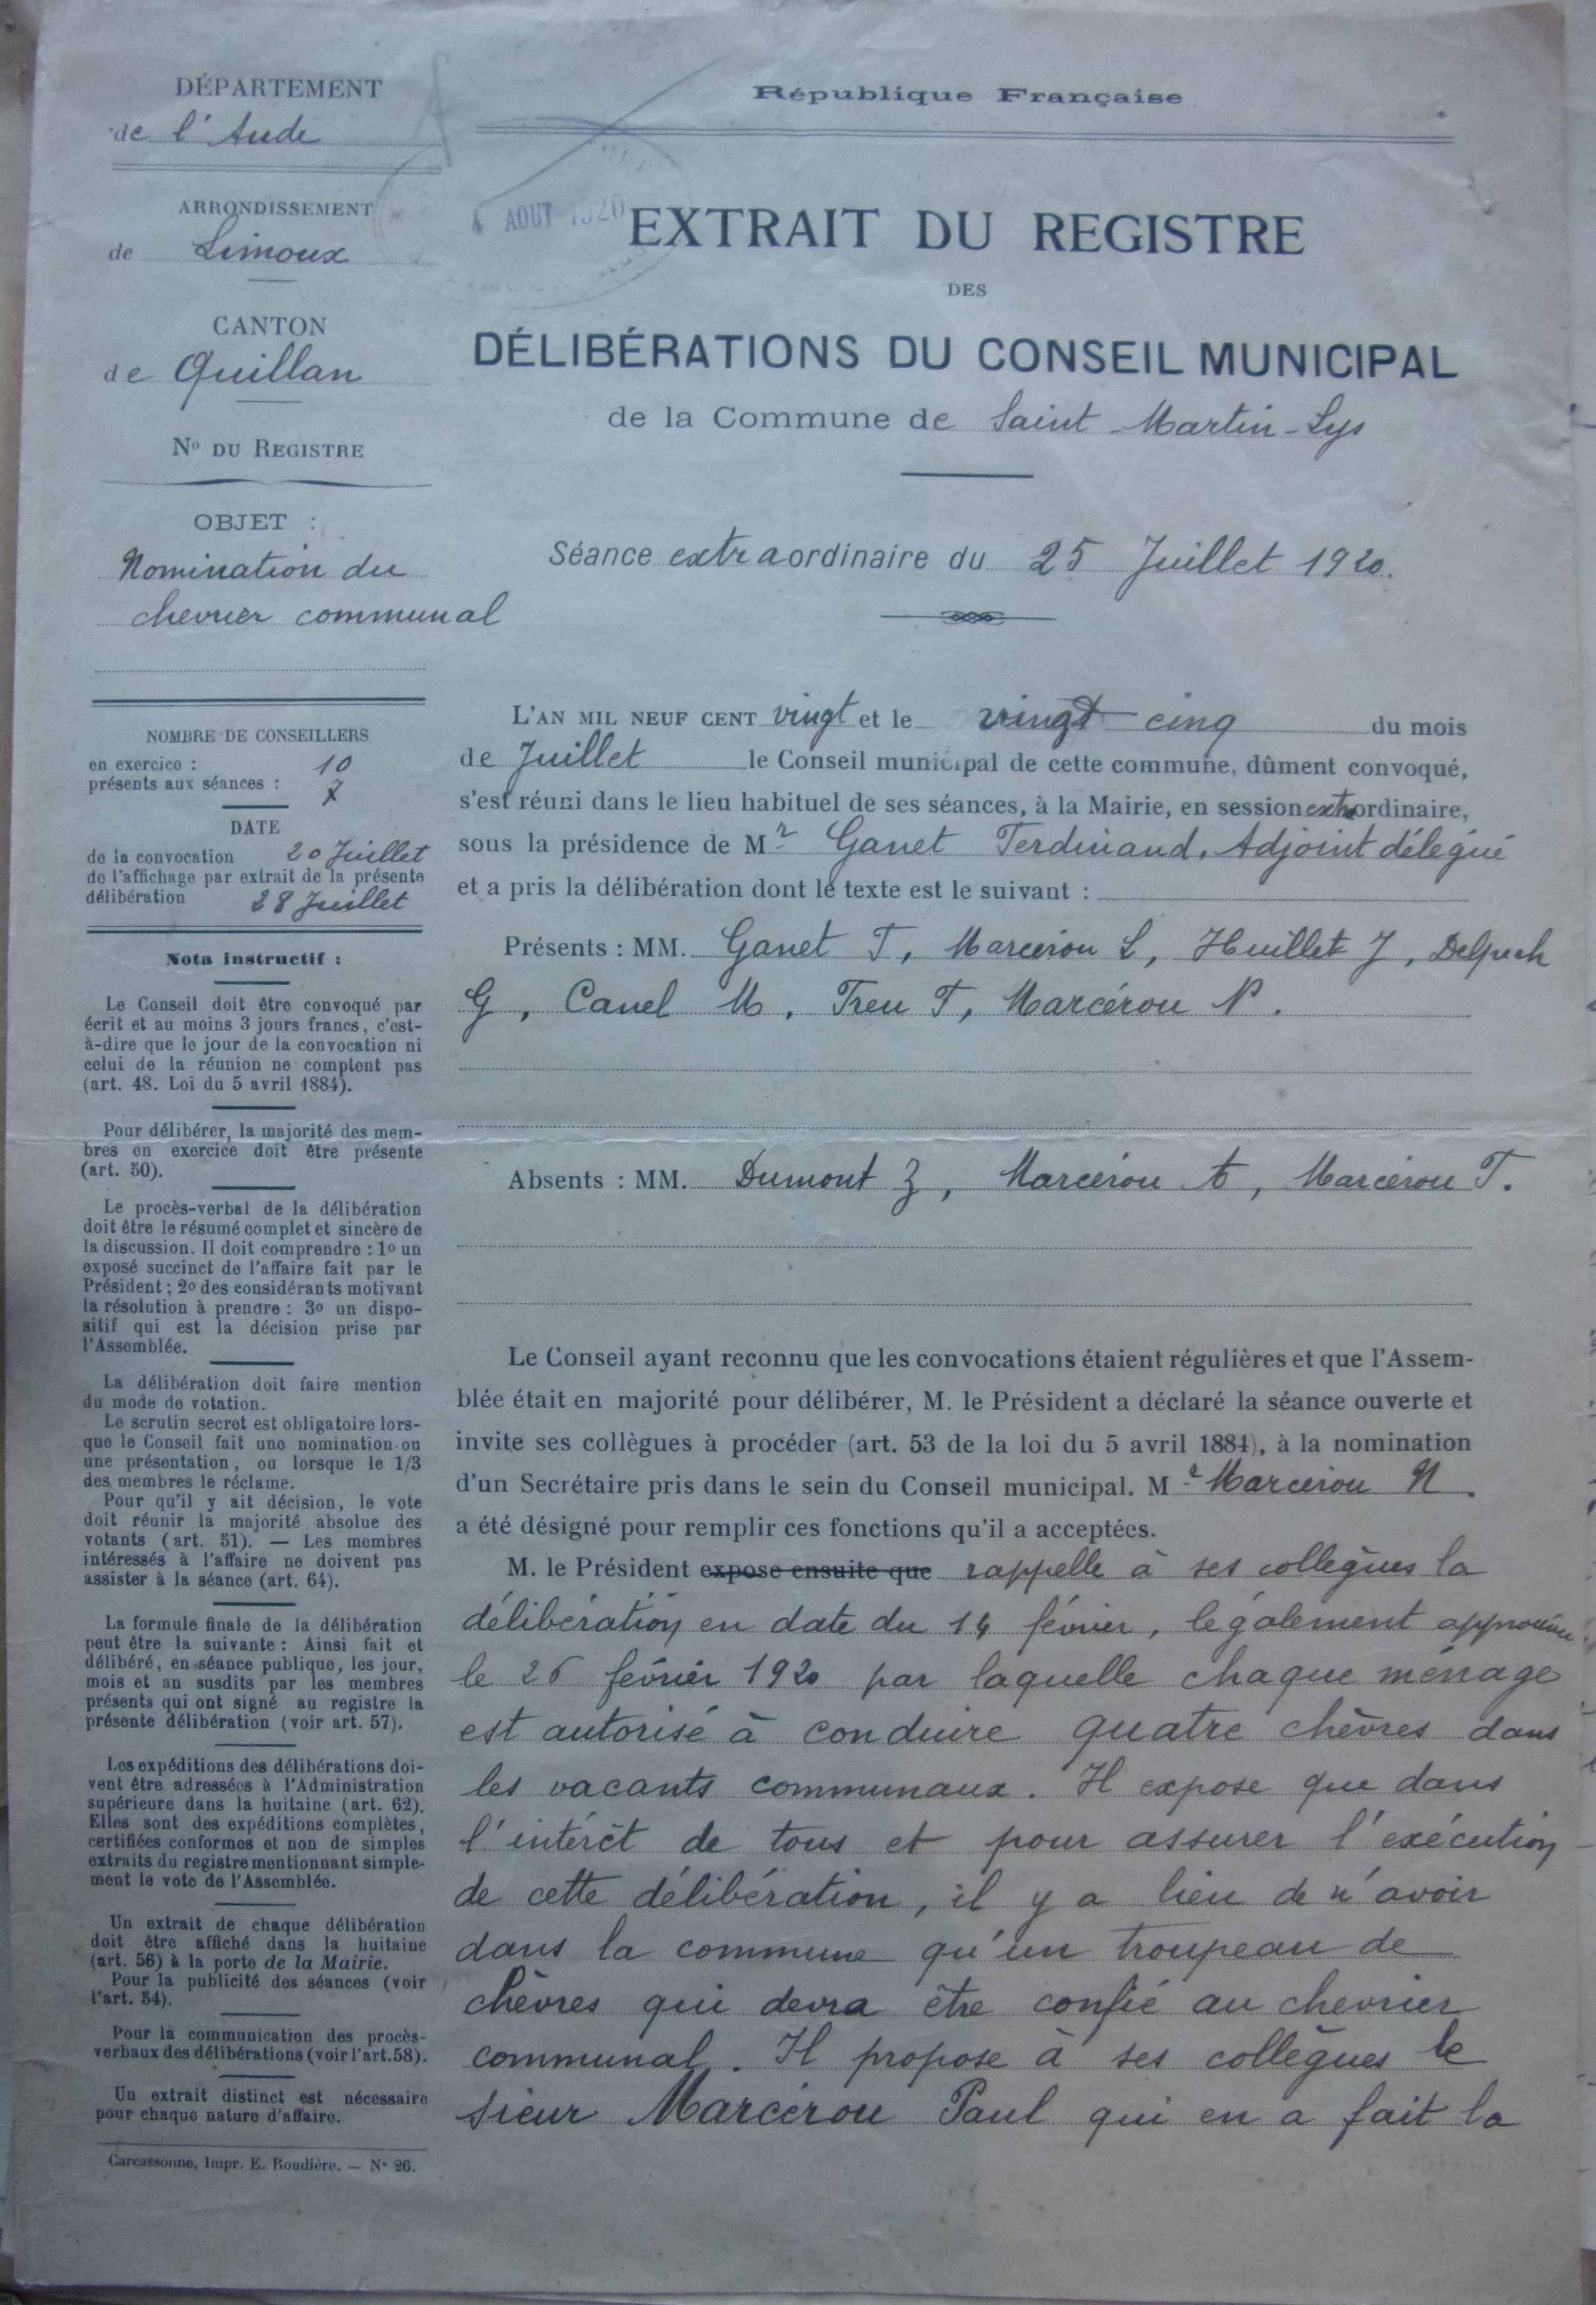 DÉPARTEMENT
de l'Aude
ARRONDISSEMENT
de Limoux
CANTON
de Quillan
No DU REGISTRE
OBJET :
Nomination du
chevrier communal
NOMBRE DE CONSEILLERS
en exercice : 10
présents aux séances : 7
DATE
de la convocation 20 Juillet
de l'affichage par extrait de la présente
délibération 28 Juillet
Nota instructif :
Le Conseil doit être convoqué par
écrit et au moins 3 jours francs, c'est-
à-dire que le jour de la convocation ni
celui de la réunion ne comptent pas
(art. 48. Loi du 5 avril 1884).
Pour délibérer, la majorité des mem-
bres en exercice doit être présente
(art. 50).
Le procès-verbal de la délibération
doit être le résumé complet et sincère de
la discussion. Il doit comprendre : 1o un
exposé succinct de l'affaire fait par le
Président ; 2o des considérants motivant
la résolution à prendre : 3o un dispo-
sitif qui est la décision prise par
l'Assemblée.
La délibération doit faire mention
du mode de votation.
Le scrutin secret est obligatoire lors-
que le Conseil fait une nomination ou
une présentation, ou lorsque le 1/3
des membres le réclame.
Pour qu'il y ait décision, le vote
doit réunir la majorité absolue des
votants (art. 51). — Les membres
intéressés à l'affaire ne doivent pas
assister à la séance (art. 64).
La formule finale de la délibération
peut être la suivante : Ainsi fait et
délibéré, en séance publique, les jour,
mois et an susdits par les membres
présents qui ont signé au registre la
présente délibération (voir art. 57).
Les expéditions des délibérations doi-
vent être adressées à l'Administration
supérieure dans la huitaine (art. 62).
Elles sont des expéditions complètes,
certifiées conformes et non de simples
extraits du registre mentionnant simple-
ment le vote de l'Assemblée.
Un extrait de chaque délibération
doit être affiché dans la huitaine
(art. 56) à la porte de la Mairie.
Pour la publicité des séances (voir
l'art. 54).
Pour la communication des procès-
verbaux des délibérations (voir l'art. 58).
Un extrait distinct est nécessaire
pour chaque nature d'affaire.
Carcassonne, Impr. E. Roudière. — No 26.
République Française
4 AOUT 1920
EXTRAIT DU REGISTRE
DES
DÉLIBÉRATIONS DU CONSEIL MUNICIPAL
de la Commune de Saint-Martin-Lys
Séance extraordinaire du 25 Juillet 1920.
L'AN MIL NEUF CENT vingt et le vingt cinq du mois
de Juillet le Conseil municipal de cette commune, dûment convoqué,
s'est réuni dans le lieu habituel de ses séances, à la Mairie, en session extraordinaire,
sous la présidence de Mr Ganet Ferdinand, Adjoint délégué
et a pris la délibération dont le texte est le suivant :
Présents : MM. Ganet F, Marcérou L, Huillet J, Delpech
G, Canel M, Treu F, Marcérou N.
Absents : MM. Dumont Z, Marcérou A, Marcérou F.
Le Conseil ayant reconnu que les convocations étaient régulières et que l'Assem-
blée était en majorité pour délibérer, M. le Président a déclaré la séance ouverte et
invite ses collègues à procéder (art. 53 de la loi du 5 avril 1884), à la nomination
d'un Secrétaire pris dans le sein du Conseil municipal. Mr Marcérou N.
a été désigné pour remplir ces fonctions qu'il a acceptées.
M. le Président expose ensuite que rappelle à ses collègues la
délibération en date du 14 février, légalement approuvée
le 26 février 1920 par laquelle chaque ménage
est autorisé à conduire quatre chèvres dans
les vacants communaux. Il expose que dans
l'intérêt de tous et pour assurer l'exécution
de cette délibération, il y a lieu de n'avoir
dans la commune qu'un troupeau de
chèvres qui devra être confié au chevrier
communal. Il propose à ses collègues le
sieur Marcérou Paul qui en a fait la